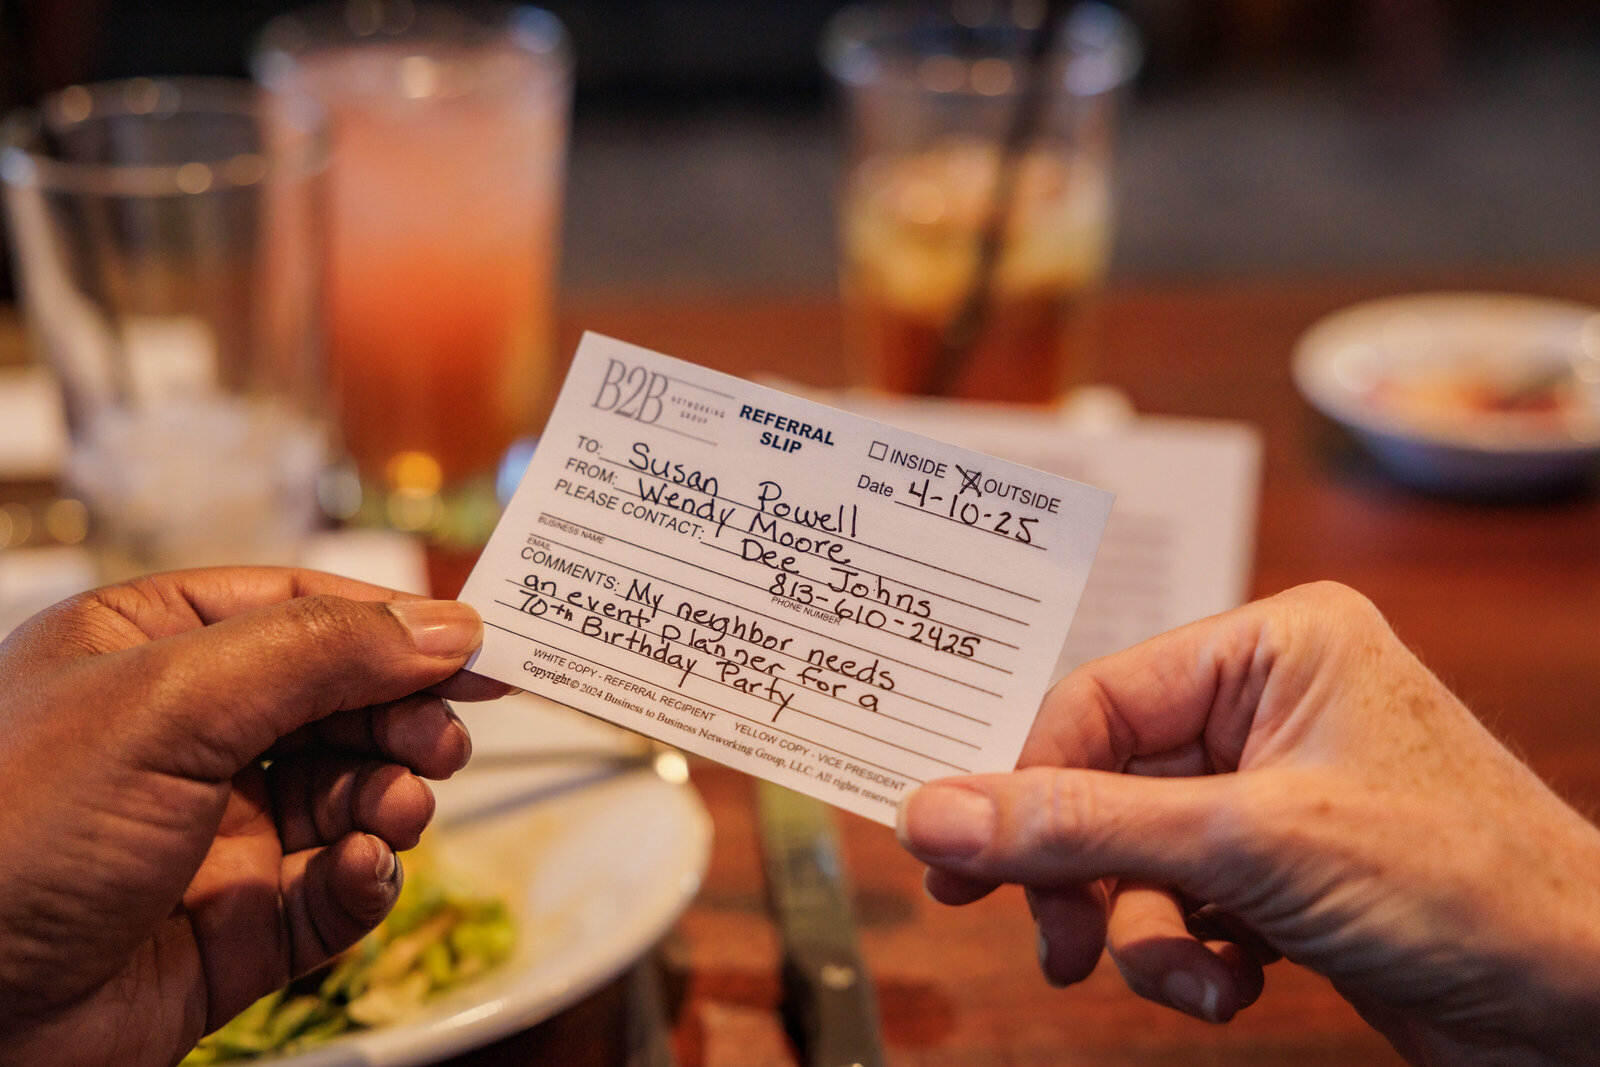 B2B NETWORKING GROUP
REFERRAL SLIP
INSIDE OUTSIDE
Date 4-10-25
TO: Susan Powell
FROM: Wendy Moore
PLEASE CONTACT: Dee Johns
813-610-2425
BUSINESS NAME
PHONE NUMBER
EMAIL
COMMENTS: My neighbor needs
an event planner for a
70th Birthday Party
WHITE COPY - REFERRAL RECIPIENT YELLOW COPY - VICE PRESIDENT
Copyright © 2024 Business to Business Networking Group, LLC. All rights reserved